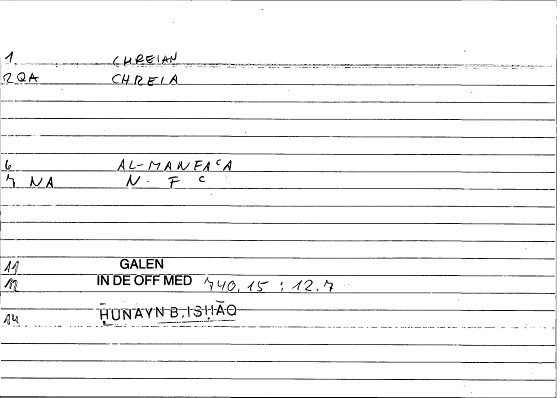 1 CHREIAN
2 QA CHREIA
6 AL-MANFAʿA
7 NA N F ʿ
11 GALEN
12 IN DE OFF MED 740,15 : 12.7
14 ḤUNAYN B. ISḤĀQ